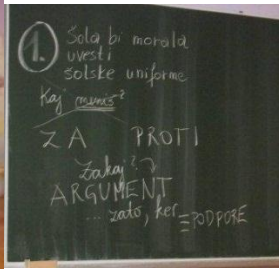 1. Šola bi morala
uvesti
šolske uniforme
Kaj meniš?
ZA PROTI
Zakaj?
ARGUMENT
... zato, ker PODPORE